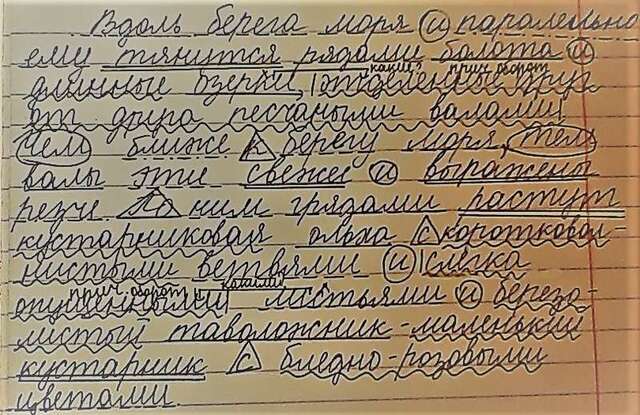 Вдоль берега моря и паралельно
ему тянутся рядами болота и
какие? прич. оборот
длинные озерки, отделённые друг
от друга песчаными валами.
Чем ближе к берегу моря, тем
валы эти свежее и выражены
резче. По ним грядами растут
кустарниковая ольха с коротковол-
нистыми ветвями и слегка
прич. оборот какими?
опушенными листьями и березо-
листый таволожник-маленький
кустарник с бледно-розовыми
цветами.